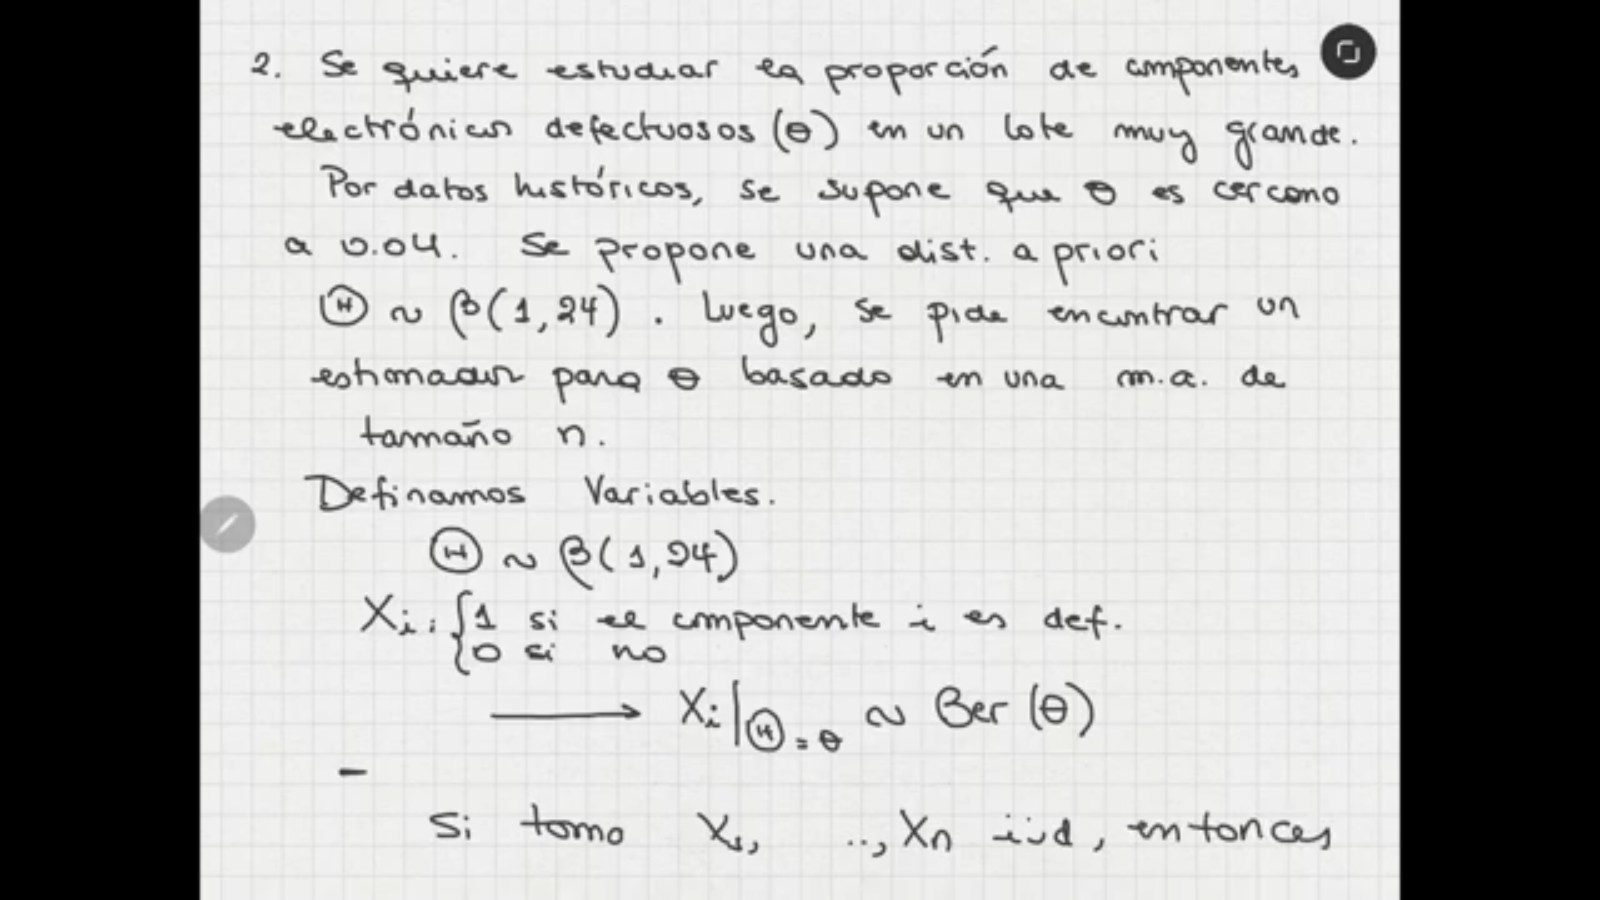 2. Se quiere estudiar la proporción de componentes
electrónicos defectuosos (θ) en un lote muy grande.
Por datos históricos, se supone que θ es cercano
a 0.04. Se propone una dist. a priori
Ⓗ ~ β(1,24). Luego, se pide encontrar un
estimador para θ basado en una m.a. de
tamaño n.
Definamos Variables.
Ⓗ ~ β(1,24)
Xi: { 1 si el componente i es def.
0 si no
→ Xi|Ⓗ=θ ~ Ber(θ)
Si tomo X1, .., Xn iid, entonces